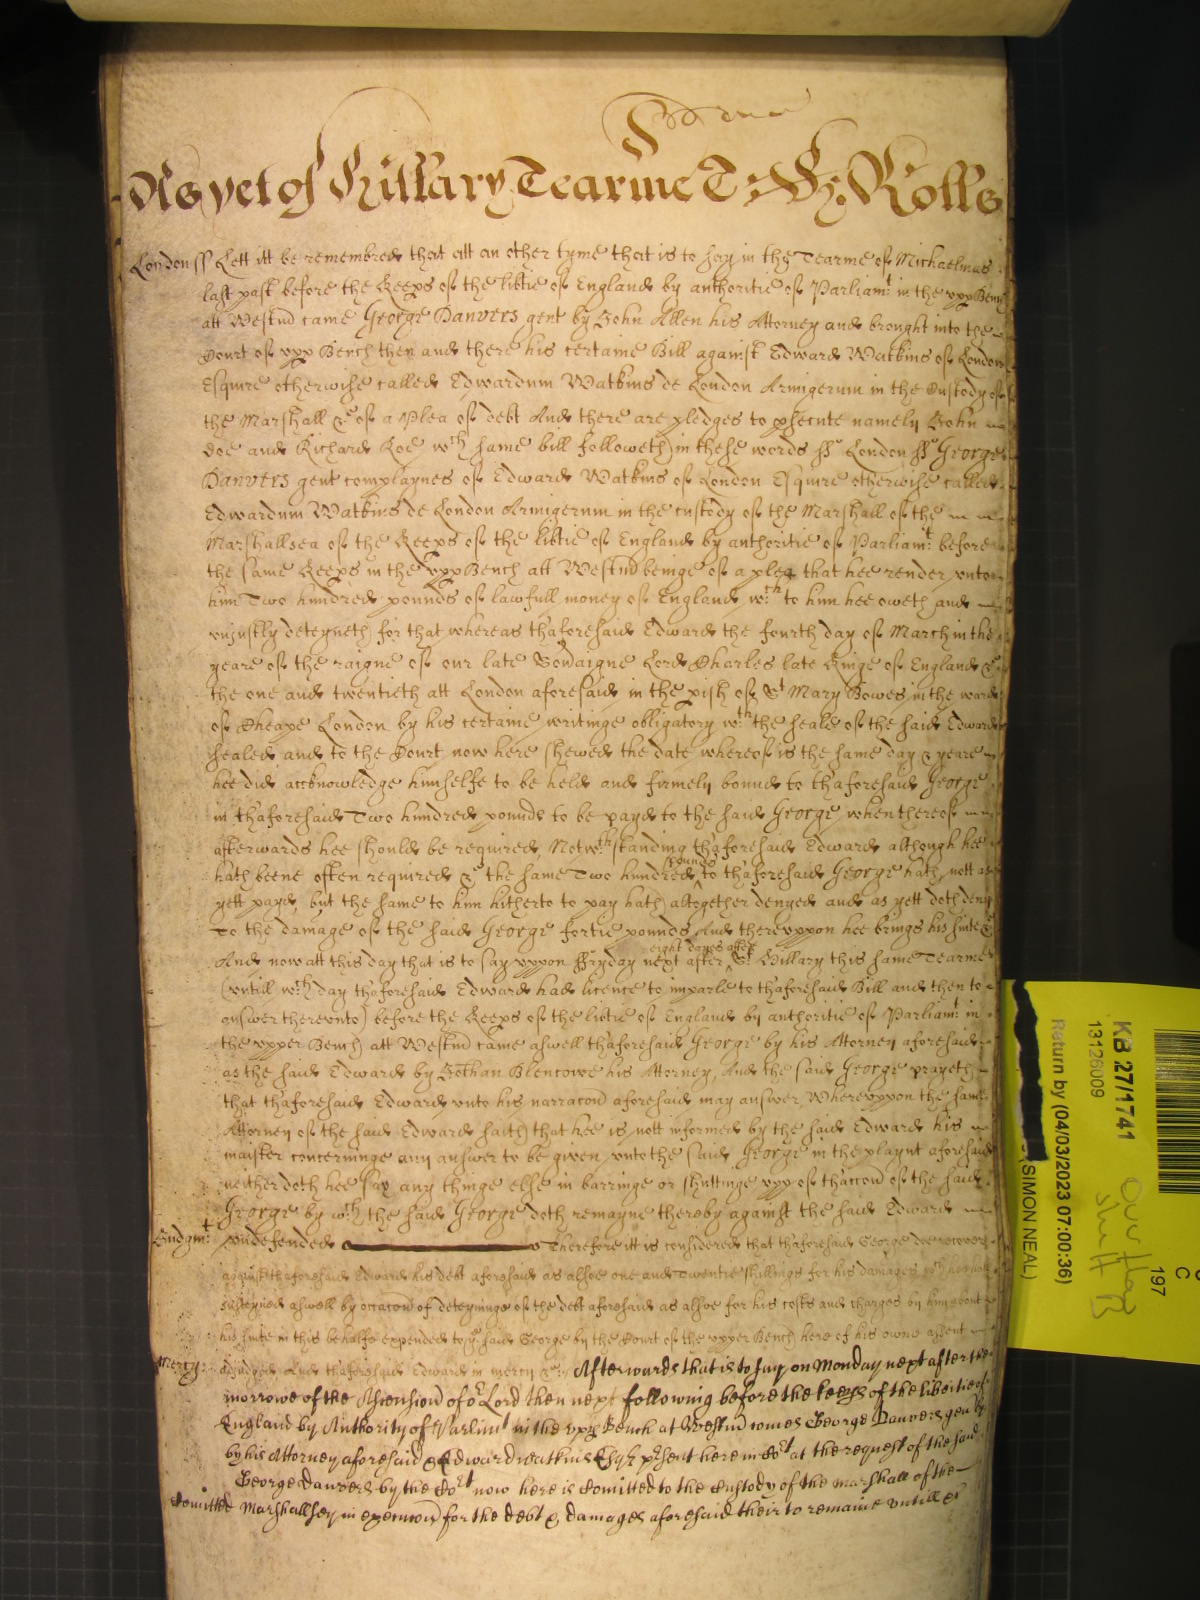 As yet of Hillary Tearme T: Ex: Rolls
London ss Lett itt be remembred that att an other tyme that is to say in the Tearme of Michaelmas
last past before the Keeps of the libtie of England by authoritie of Parliamt in the upp Bench
att Westmd came George Danvers gent by John Allen his Attorney and brought into the
Court of upp Bench then and there his certaine Bill against Edward Watkins of London
Esquire otherwise called Edwardum Watkins de London Armigerum in the Custody of
the Marshall &c of a Plea of debt And there are pledges to psecute namely John
Doe and Richard Roe wch same bill followeth in these words ss London ss George
Danvers gent complaynes of Edward Watkins of London Esquire otherwise called
Edwardum Watkins de London Armigerum in the custody of the Marshall of the
Marshallsea of the Keeps of the libtie of England by authoritie of Parliamt before
the same Keeps in the upp Bench att Westmd beinge of a plea that hee render unto
him Two hundred pounds of lawfull money of England wch to him hee oweth and
uniustly deteyneth for that whereas thaforesaid Edward the fourth day of March in the
yeare of the raigne of our late Sovaigne Lord Charles late Kinge of England &c
the one and twentieth att London aforesaid in the pish of St Mary Bowes in the ward
of Cheape London by his certaine writinge obligatory wth the seale of the said Edward
sealed and to the Court now here shewed the date whereof is the same day & yeare
hee did accknowledge himselfe to be held and firmely bound to thaforesaid George
in thaforesaid Two hundred pounds to be payd to the said George when thereof
afterwards hee should be required, Notwthstanding thaforesaid Edward although hee
hath beene often required &c the same Two hundred pounds to thaforesaid George hath nott as
yett payd, but the same to him hitherto to pay hath altogether denyed and as yett doth deny
To the damage of the said George fortie pounds And thereuppon hee brings his suite &c
And now att this day that is to say uppon ffryday next after eight dayes after St Hillary this same Tearme
(untill wch day thaforesaid Edward had licence to imparle to thaforesaid Bill and then to
answer thereunto) before the Keeps of the libtie of England by authoritie of Parliamt in
the upper Bench att Westmd came aswell thaforesaid George by his Attorney aforesaid
as the said Edward by Jothan Blencowe his Attorney, And the said George prayeth
that thaforesaid Edward unto his narracon aforesaid may answer, Whereuppon the same
Attorney of the said Edward saith that hee is nott informed by the said Edward his
maister concerninge any answer to be given unto the said George in the playnt aforesaid
neither doth hee say any thinge else in barringe or shuttinge upp of thaccon of the said
George by wch the said George doth remayne thereby against the said Edward
Judgmt undefended Therefore itt is considered that thaforesaid George doe recover
against thaforesaid Edward his debt aforesaid as alsoe one and Twentie shillings for his damages wch hee hath
susteyned aswell by occacon of deteyninge of the debt aforesaid as alsoe for his costs and charges by him about
his suite in this behalfe expended to ye said George by the Court of the upper Bench here of his owne assent
Mercy: adiudged And thaforesaid Edward in mercy &c: Afterwards that is to say on Monday next after the
morrowe of the Ascension of or Lord then next following before the keeps of the libertie of
England by Authority of Parlimt in the upp Bench at Westmd comes George Danvers gen by
by his Attorney aforesaid & Edward watkins Esqr psent here in Cort at the request of the said
George Danvers by the Cort now here is Comitted to the Custody of the marshall of the
Comitted Marshallsey in execucon for the debt & damages aforesaid their to remaine untill &c
KB 27/1741
13126009
Return by (04/03/2023 07:00:36)
(SIMON NEAL)
197
C